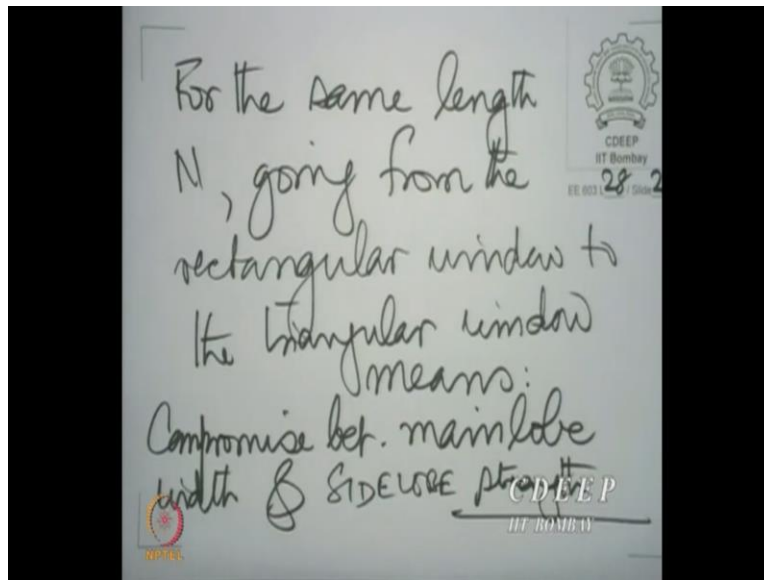 For the same length
N, going from the
rectangular window to
the triangular window
means:
Compromise bet. mainlobe
width & SIDELOBE strength
CDEEP
IIT Bombay
EE 603 L 28 / Slide 2
CDEEP
IIT BOMBAY
NPTEL